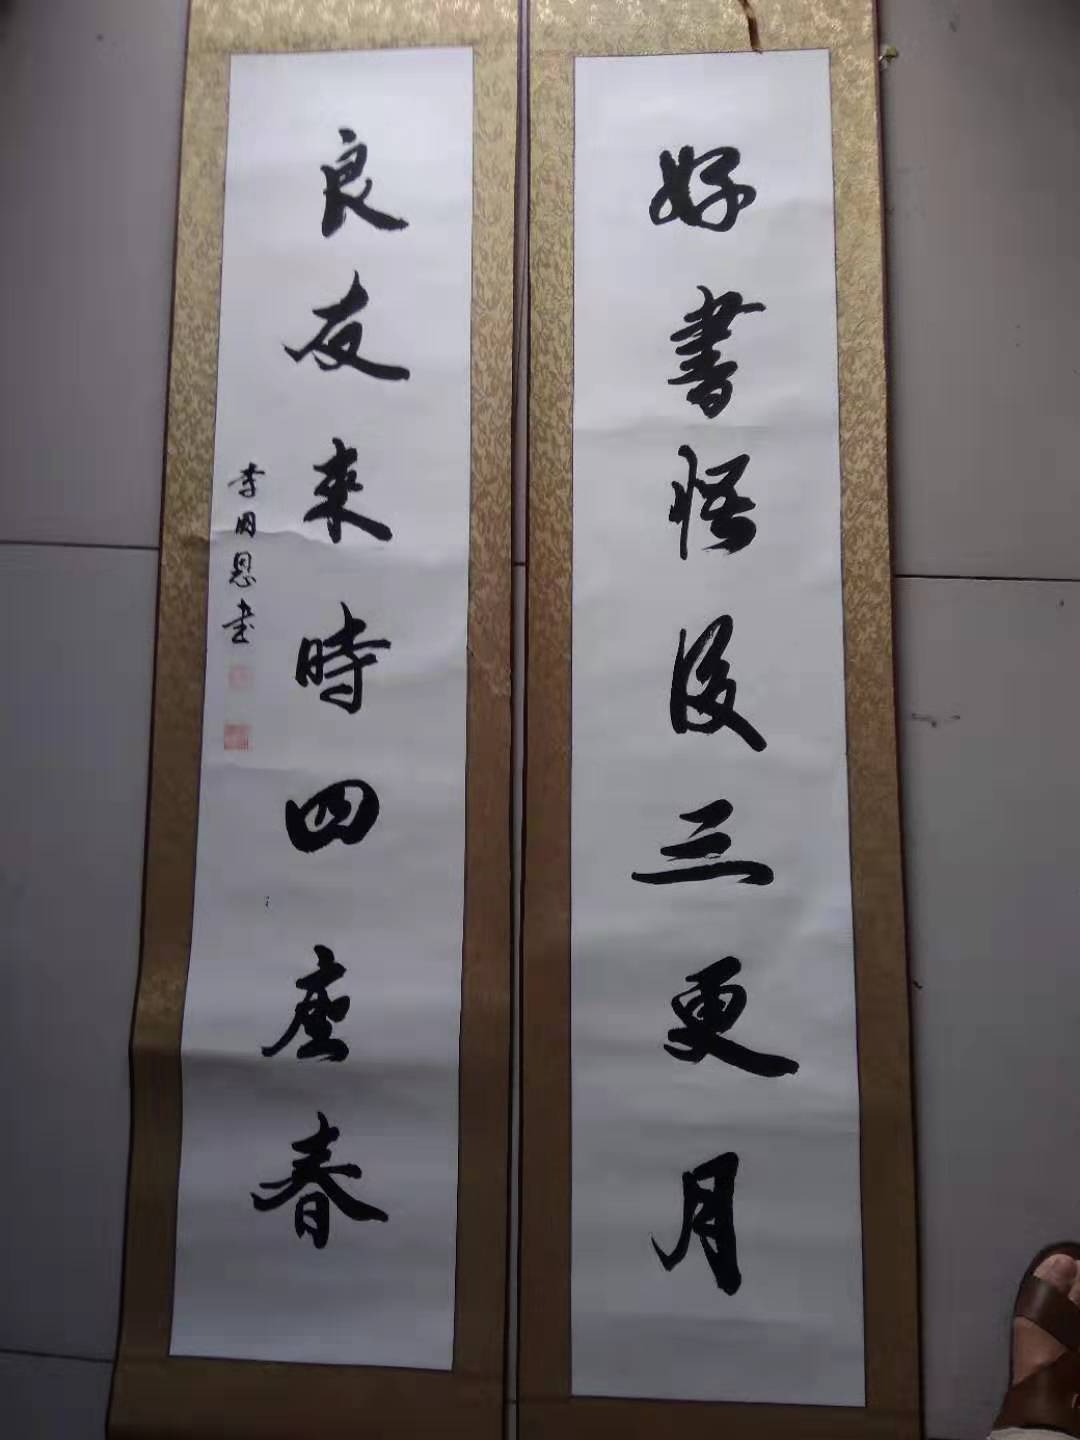 好書悟後三更月
良友來時四座春
李國恩书